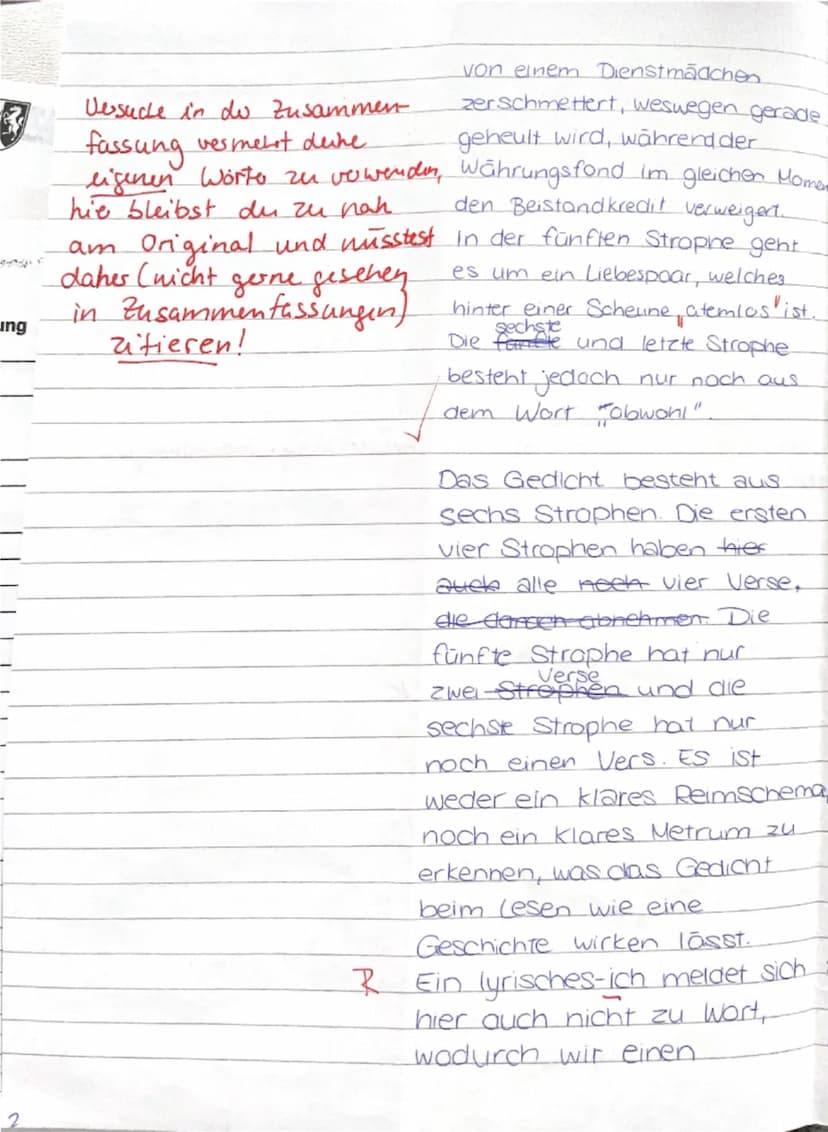 Versuche in der Zusammen-
fassung vermehrt deine
eigenen Wörter zu verwenden,
hier bleibst du zu nah
am Original und müsstest
daher (nicht gerne gesehen
in Zusammenfassungen)
zitieren!
ung
von einem Dienstmädchen
zerschmettert, weswegen gerade
geheult wird, während der
Währungsfond im gleichen Momen
den Beistandkredit verweigert.
In der fünften Strophe geht
es um ein Liebespaar, welches
hinter einer Scheune "atemlos" ist.
sechste
Die fünfte und letzte Strophe
besteht jedoch nur noch aus
dem Wort "obwohl".
Das Gedicht besteht aus
sechs Strophen. Die ersten
vier Strophen haben hier
auch alle noch vier Verse,
die danach abnehmen. Die
fünfte Strophe hat nur
Verse
zwei Strophen und die
sechste Strophe hat nur
noch einen Vers. Es ist
weder ein klares Reimschema,
noch ein klares Metrum zu
erkennen, was das Gedicht
beim Lesen wie eine
Geschichte wirken lässt.
R Ein lyrisches-ich meldet sich
hier auch nicht zu Wort,
wodurch wir einen
2